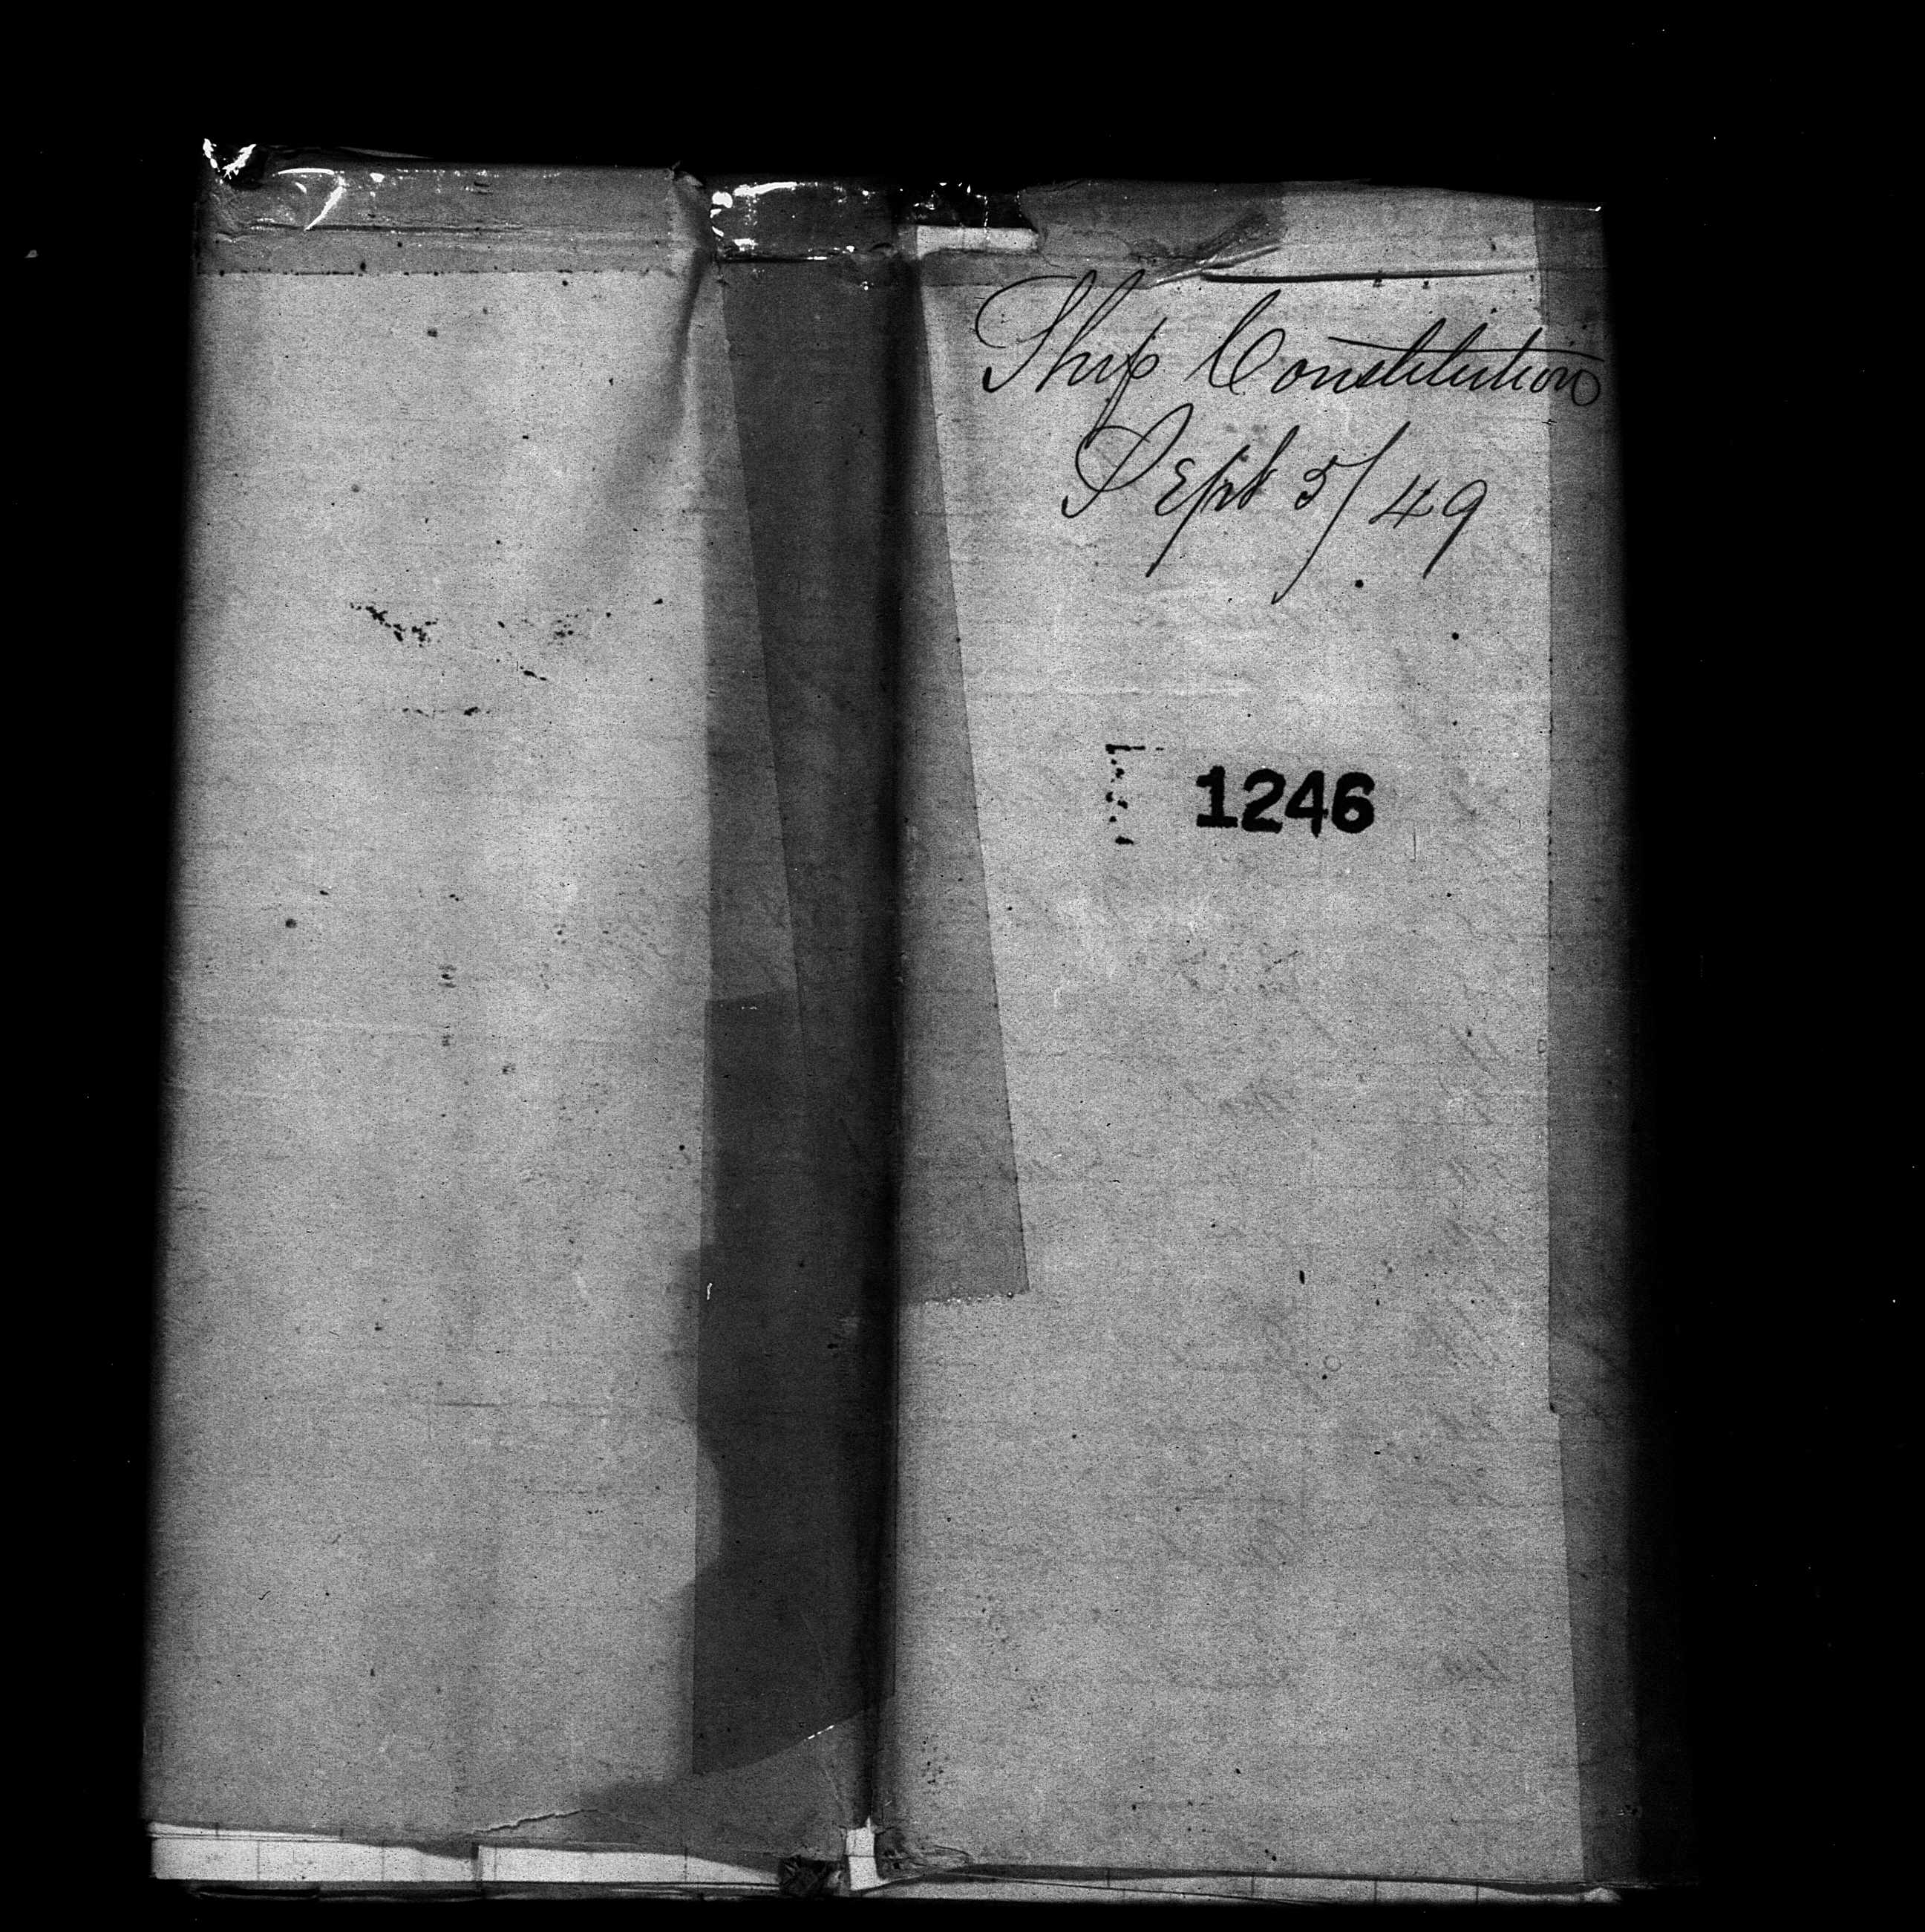 Ship Constitution
Sept 5/49
1246